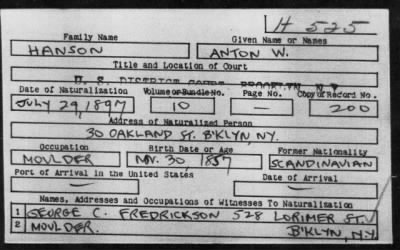 H 525
Family Name Given Name or Names
HANSON ANTON W.
Title and Location of Court
U. S. DISTRICT COURT, BROOKLYN, N.Y.
Date of Naturalization Volume or Bundle No. Page No. Copy of Record No.
JULY 29, 1897 10 — 200
Address of Naturalized Person
30 OAKLAND ST. B'KLYN, N.Y.
Occupation Birth Date or Age Former Nationality
MOULDER NOV. 30, 1857 SCANDINAVIAN
Port of Arrival in the United States Date of Arrival
Names, Addresses and Occupations of Witnesses To Naturalization
1 GEORGE C. FREDRICKSON 528 LORIMER ST.
2 MOULDER. B'KLYN, N.Y.